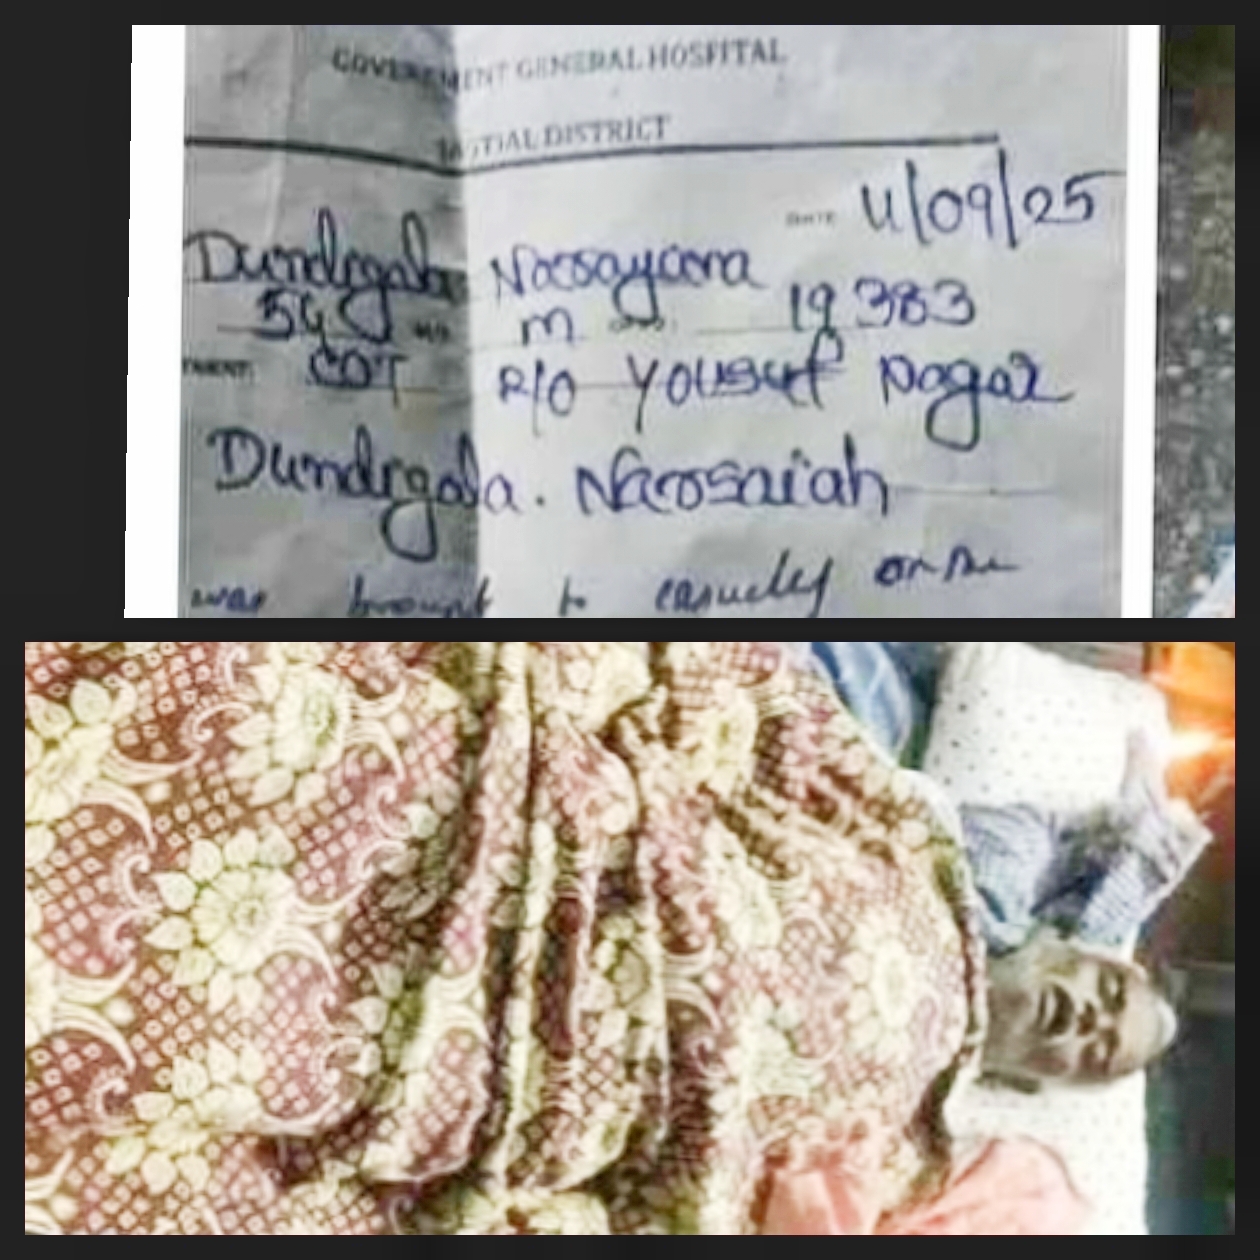 GOVERNMENT GENERAL HOSPITAL
JAGTIAL DISTRICT
DATE 4/09/25
Dundigala Narsayana
54 M 19383
COT R/O Yousuf Nagar
Dundigala. Narosaiah
was brought to casualty on the